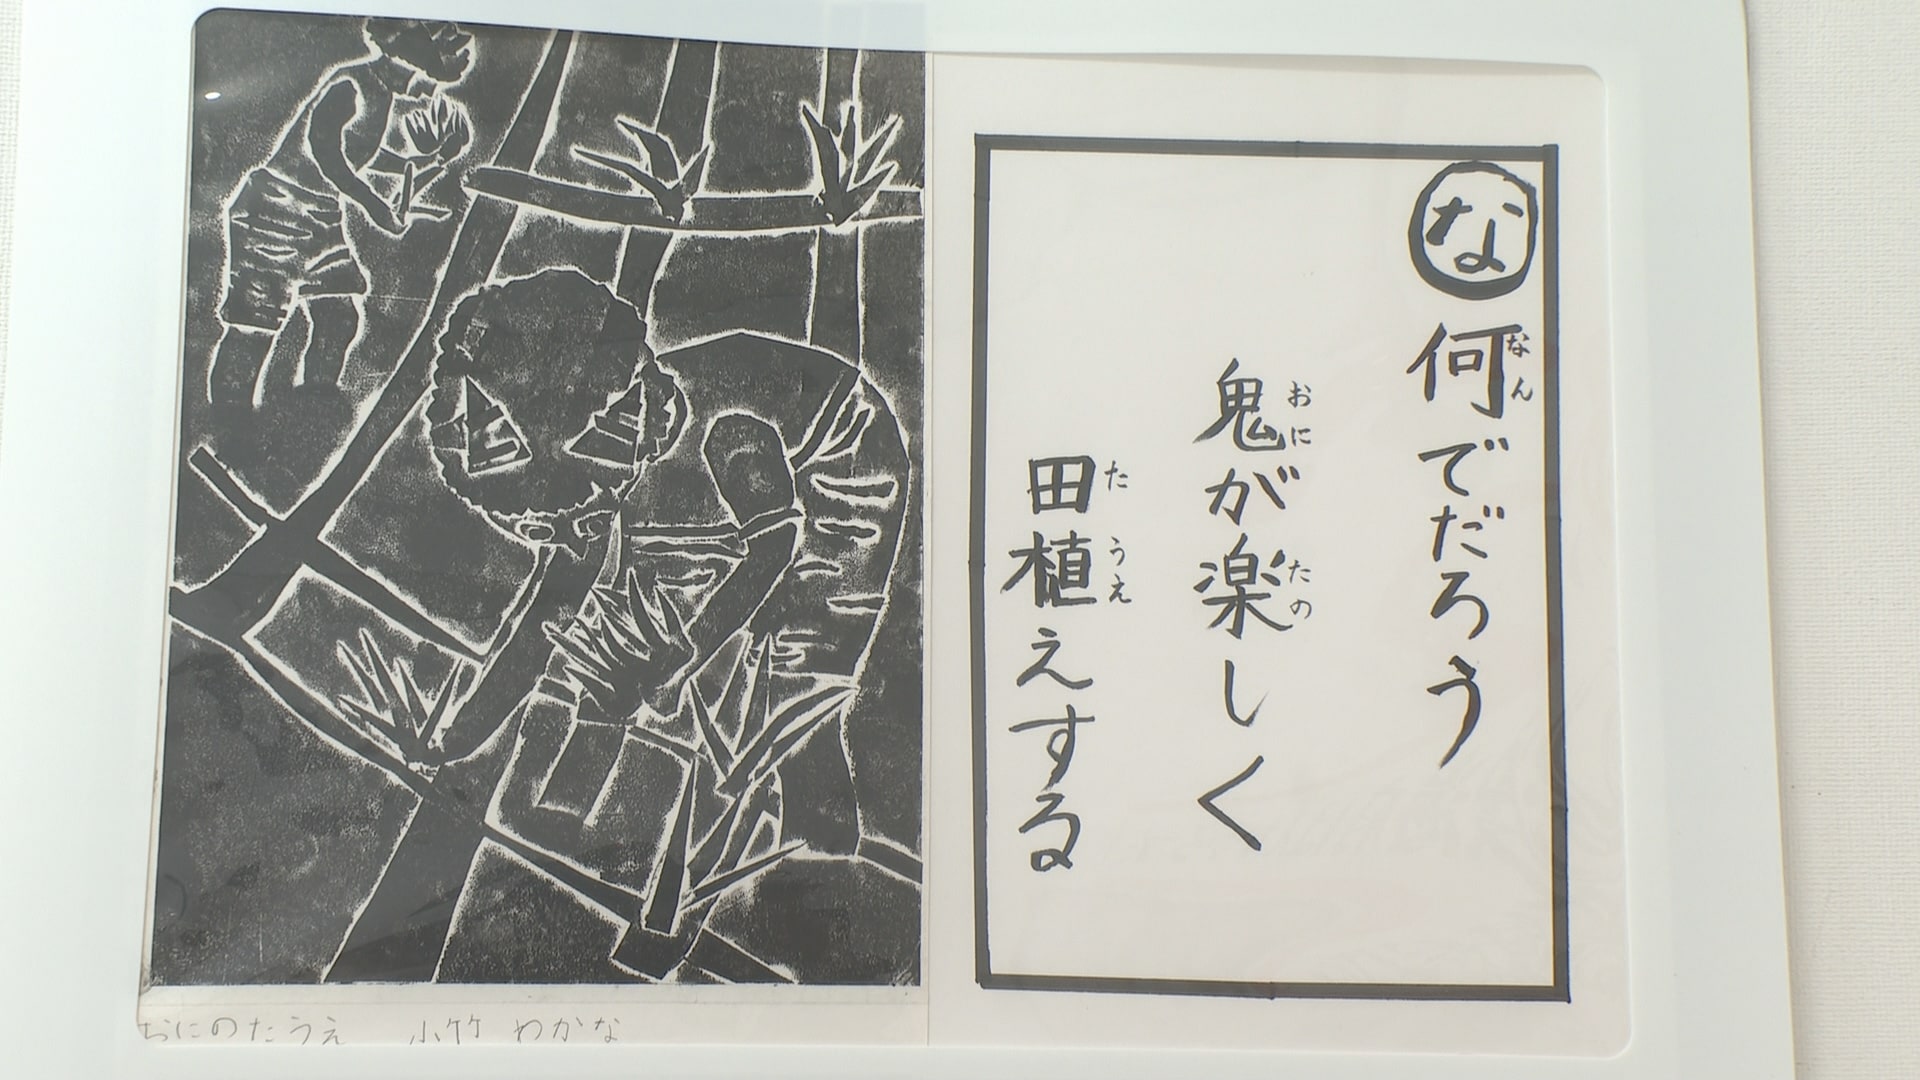 な
何でだろう
なん
鬼が楽しく
おに
たの
田植えする
た
うえ
おにのたうえ 小竹 わかな